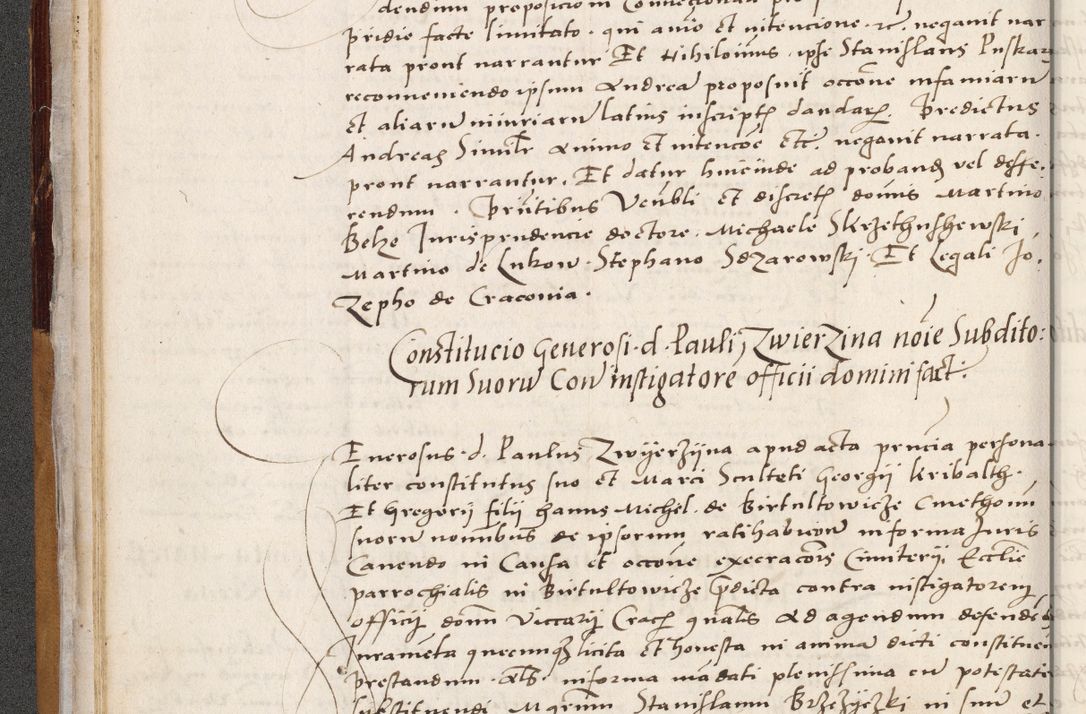 dendum propositionem
pridie facte limitato. qui animo et intencione. etc. negavit nar
rata pront narrantur Et Nihilominus ipse Stanislaus Puskarz
reconveniendo ipsum Andream proposuit occone infamiaru
et aliaru iniuriaru latius inscriptis dandarum. Predictus
Andreas Similr animo et intencoe etc. negavit narrata.
pront narrantur. Et datur huicinde ad proband vel deffe.
rendum. Prntibus Venbli et discretis domnis Martino
Belze Jurisprudencie doctore. Michaele Skrzethushewski
Martino de Lukow. Stephano Sdzarowski. Et Legali Jo,
Zepho de Craconia.
Constitucio Generosi. d. Pauli Zwierzina noie Subdito:
rum Suoru Con instigatore officii domini fact.
Enerosus. d. Paulus Zwyerzyna apud acta prncia persona
liter constitutus suo et Marci Sculteti Georgii Kribalth.
Et Gregorii filii Hanus Michel. de Birtultowicze Cmethonu
suoru nominibus de ipsorum ratihabicion informa Juris
Canendo in Causa et occone execracois Cimiterii Ecclie
parrochialis in Birtultowicze pdicta contra instigatorem
officii domni Viccarii Crac qualis ad agendum defende
Jurameta quecunqz licita et honesta in anima dicti constituen
prestandum. als. informa madati plenissima cu potestate
substituendi Mgrum Stanislaum Brzezyczki in suu et